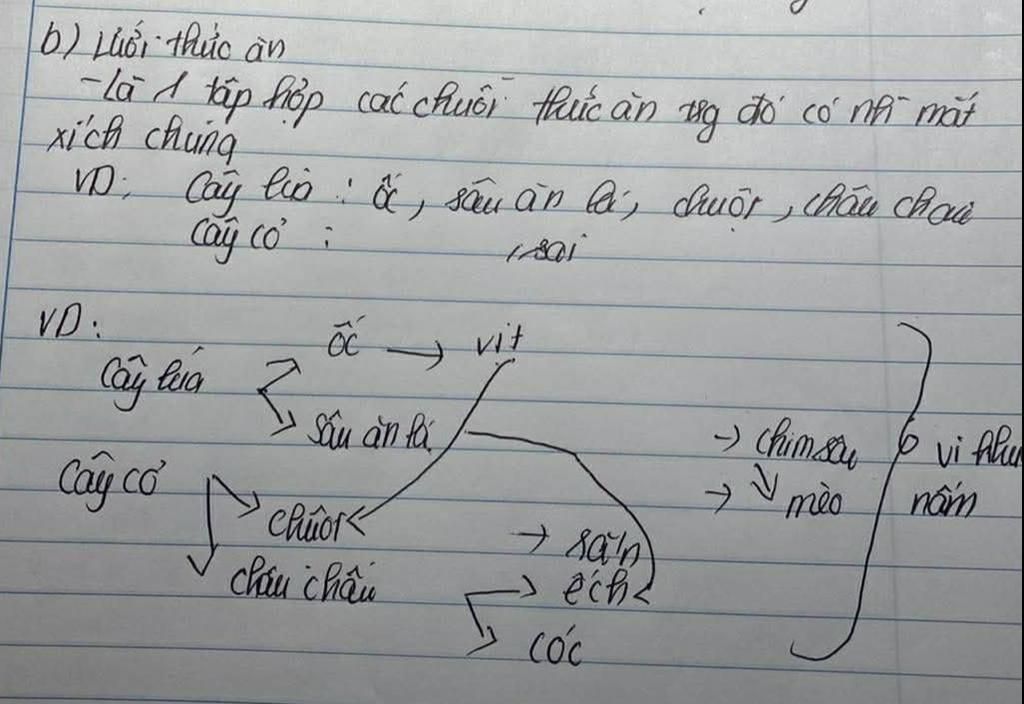 b) Lưới thức ăn
- Là 1 tập hợp các chuỗi thức ăn trg đó có nh~ mắt
xích chung
VD: Cây lúa : ốc, sâu ăn lá, chuột, châu chấu
Cây cỏ :
VD:
ốc → vịt
Cây lúa
sâu ăn lá
→ chim sâu vi khu
Cây cỏ → mèo nấm
chuột
→ rắn
châu chấu → ếch
cóc